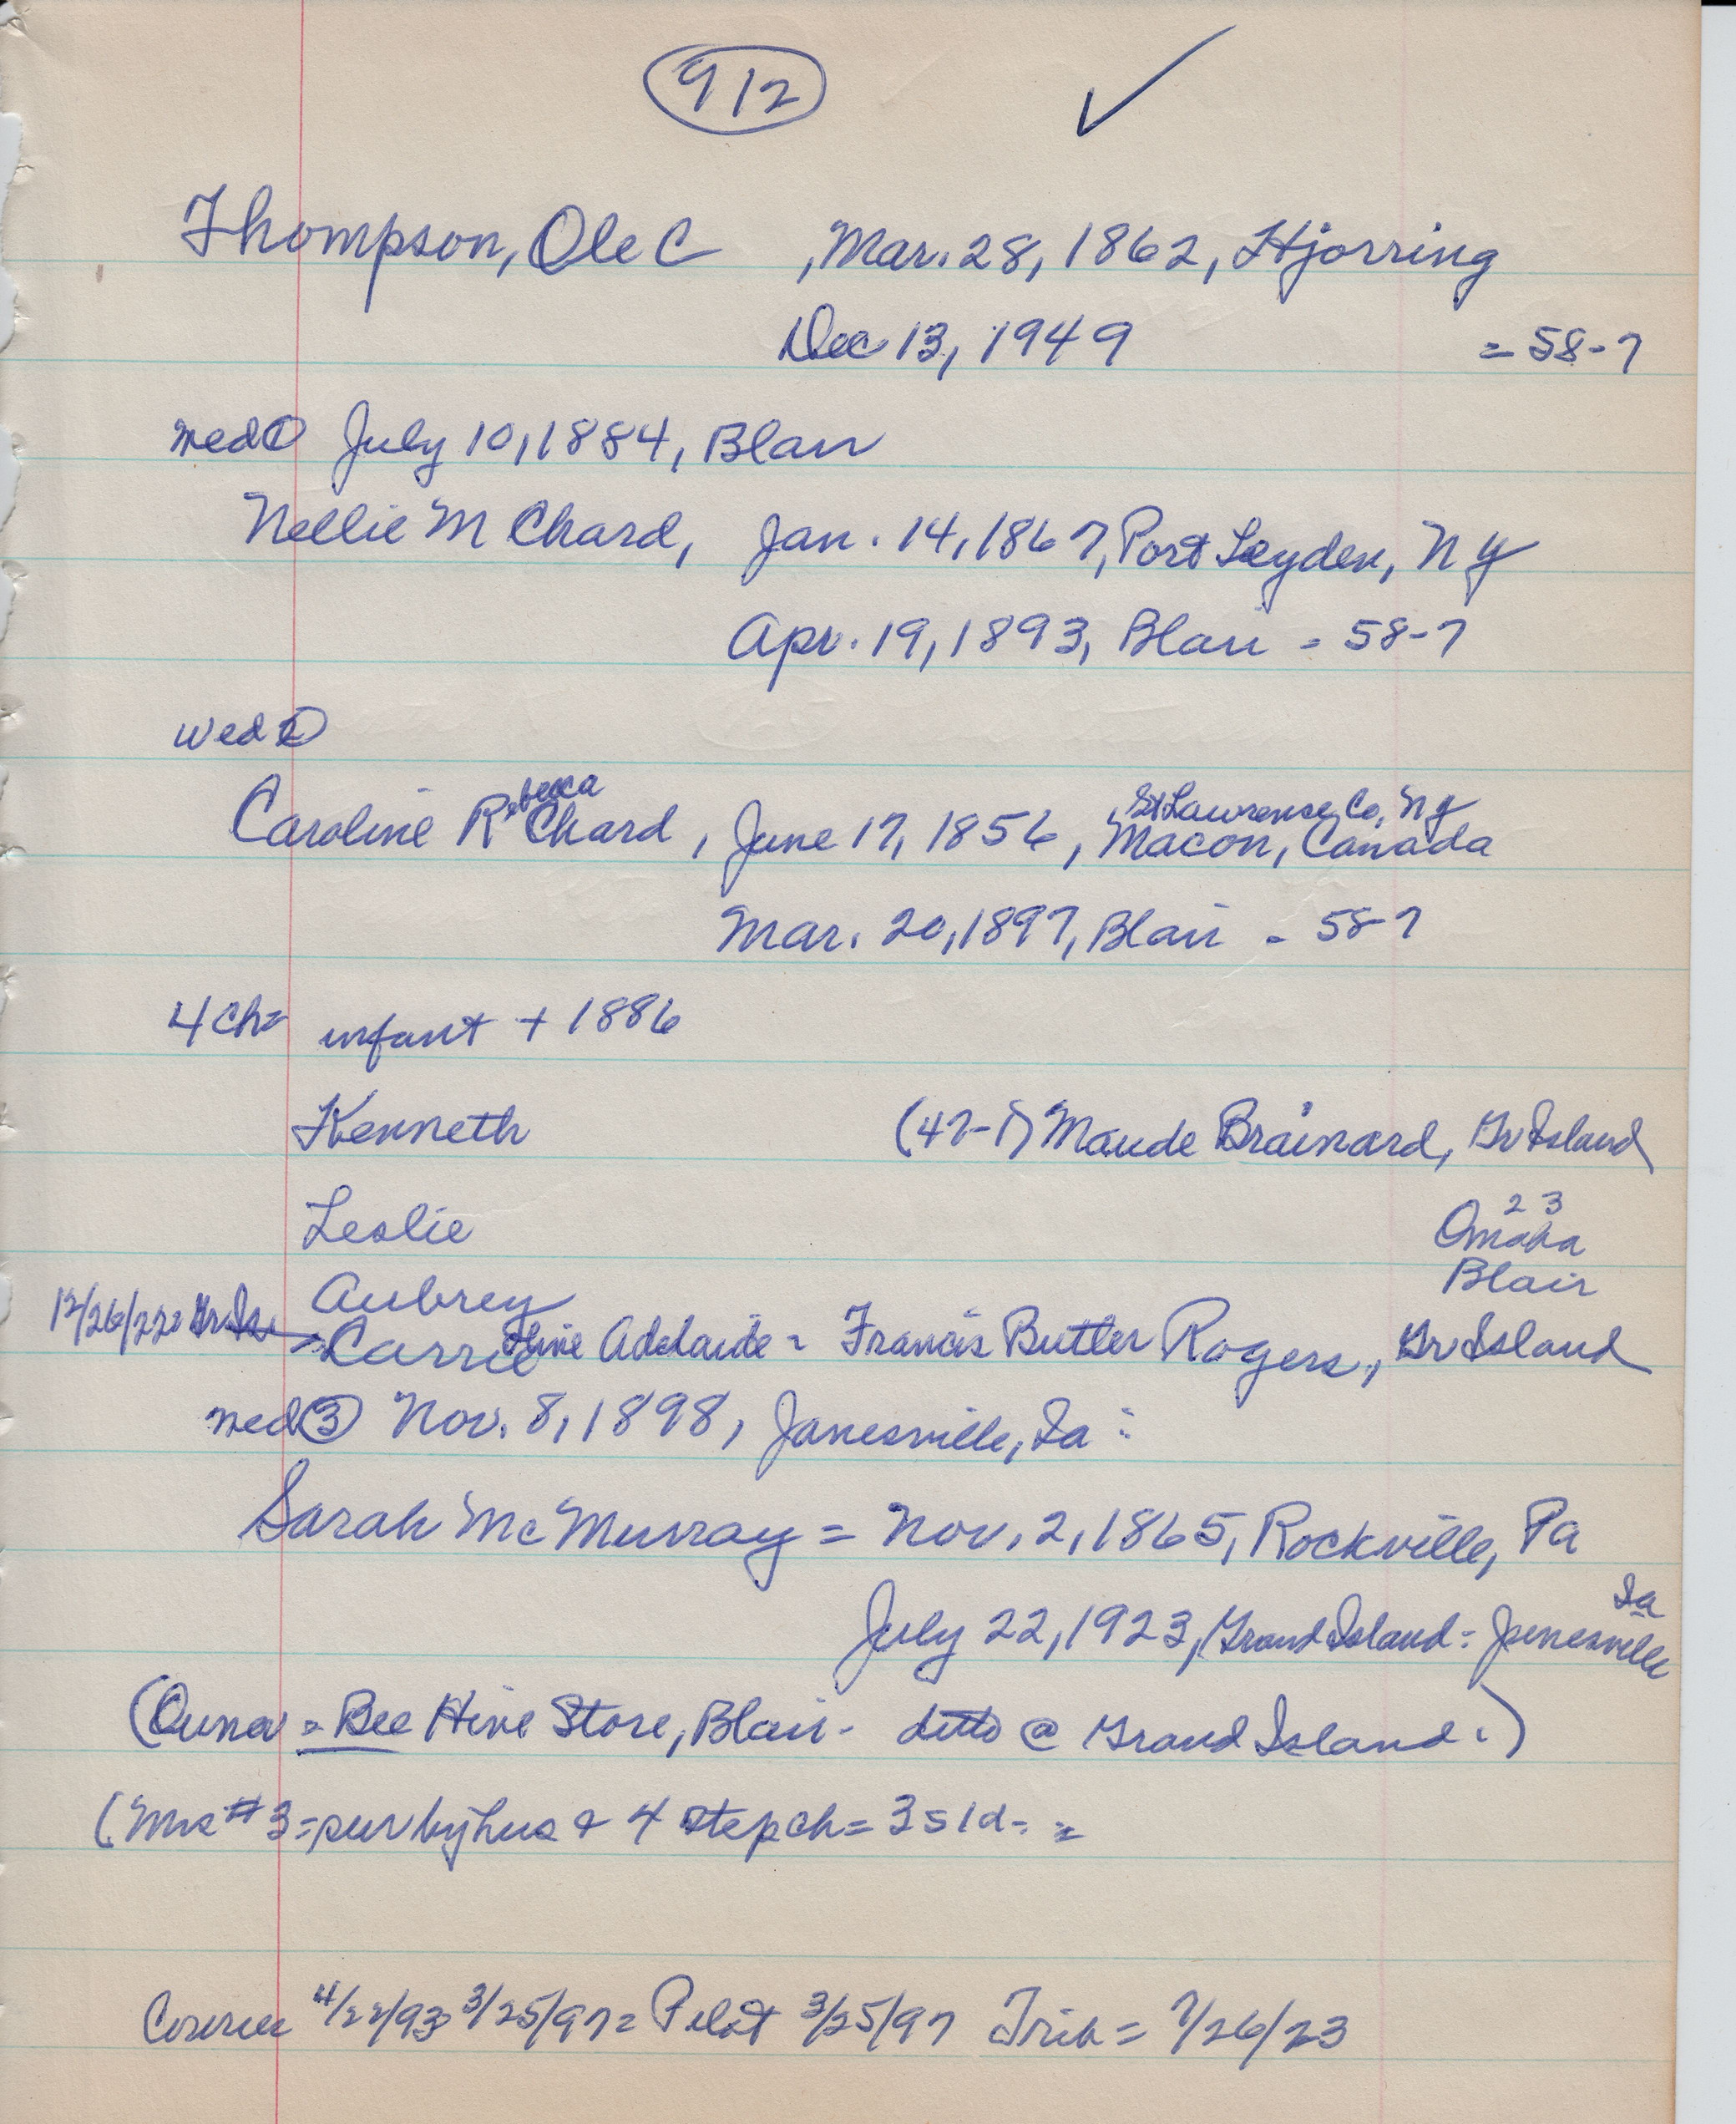 912 ✓
Thompson, Ole C , Mar. 28, 1862, Hjorring
Dec 13, 1949 = 58-7
wed ① July 10, 1884, Blair
Nellie M Chard, Jan. 14, 1867, Port Leyden, NY
Apr. 19, 1893, Blair = 58-7
wed ②
Caroline Rebecca Chard, June 17, 1856, Macon, Canada
St Lawrence Co, NY
Mar. 20, 1897, Blair - 58-7
4 ch= infant + 1886
Kenneth (47-1) Maude Brainard, Gr Island
Leslie Omaha 23
Aubrey Blair
12/26/22= Gr Is → Carrieoline Adelaide = Francis Butler Rogers, Gr Island
wed ③ Nov. 8, 1898, Janesville, Ia:
Sarah McMurray = Nov. 2, 1865, Rockville, Pa
July 22, 1923, Grand Island = Janesville Ia
(Owner = Bee Hive Store, Blair - ditto @ Grand Island.)
(Mrs #3 = sur by hus & 4 step ch = 3s 1d- =
Courier 4/22/93 3/25/97 = Pilot 3/25/97 Trib = 7/26/23